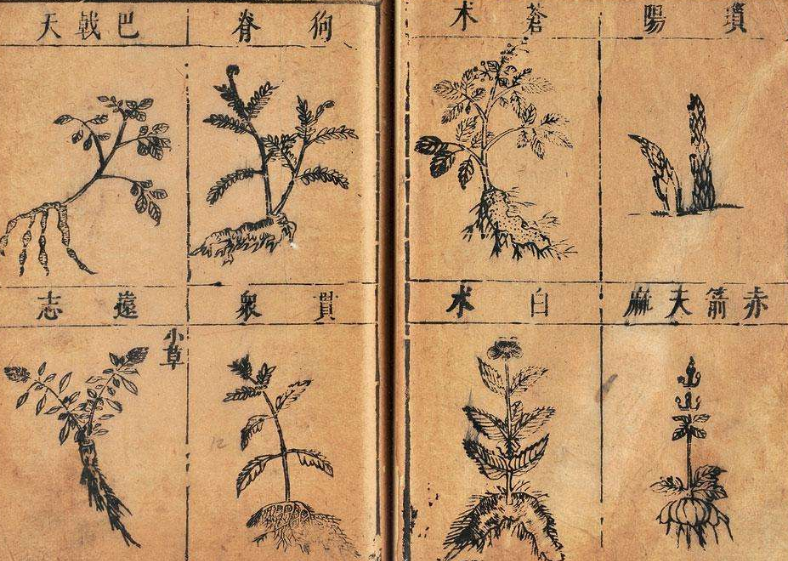 瑣陽
蒼朮
赤箭天麻
白朮
狗脊
巴戟天
貫衆
遠志
小草
12